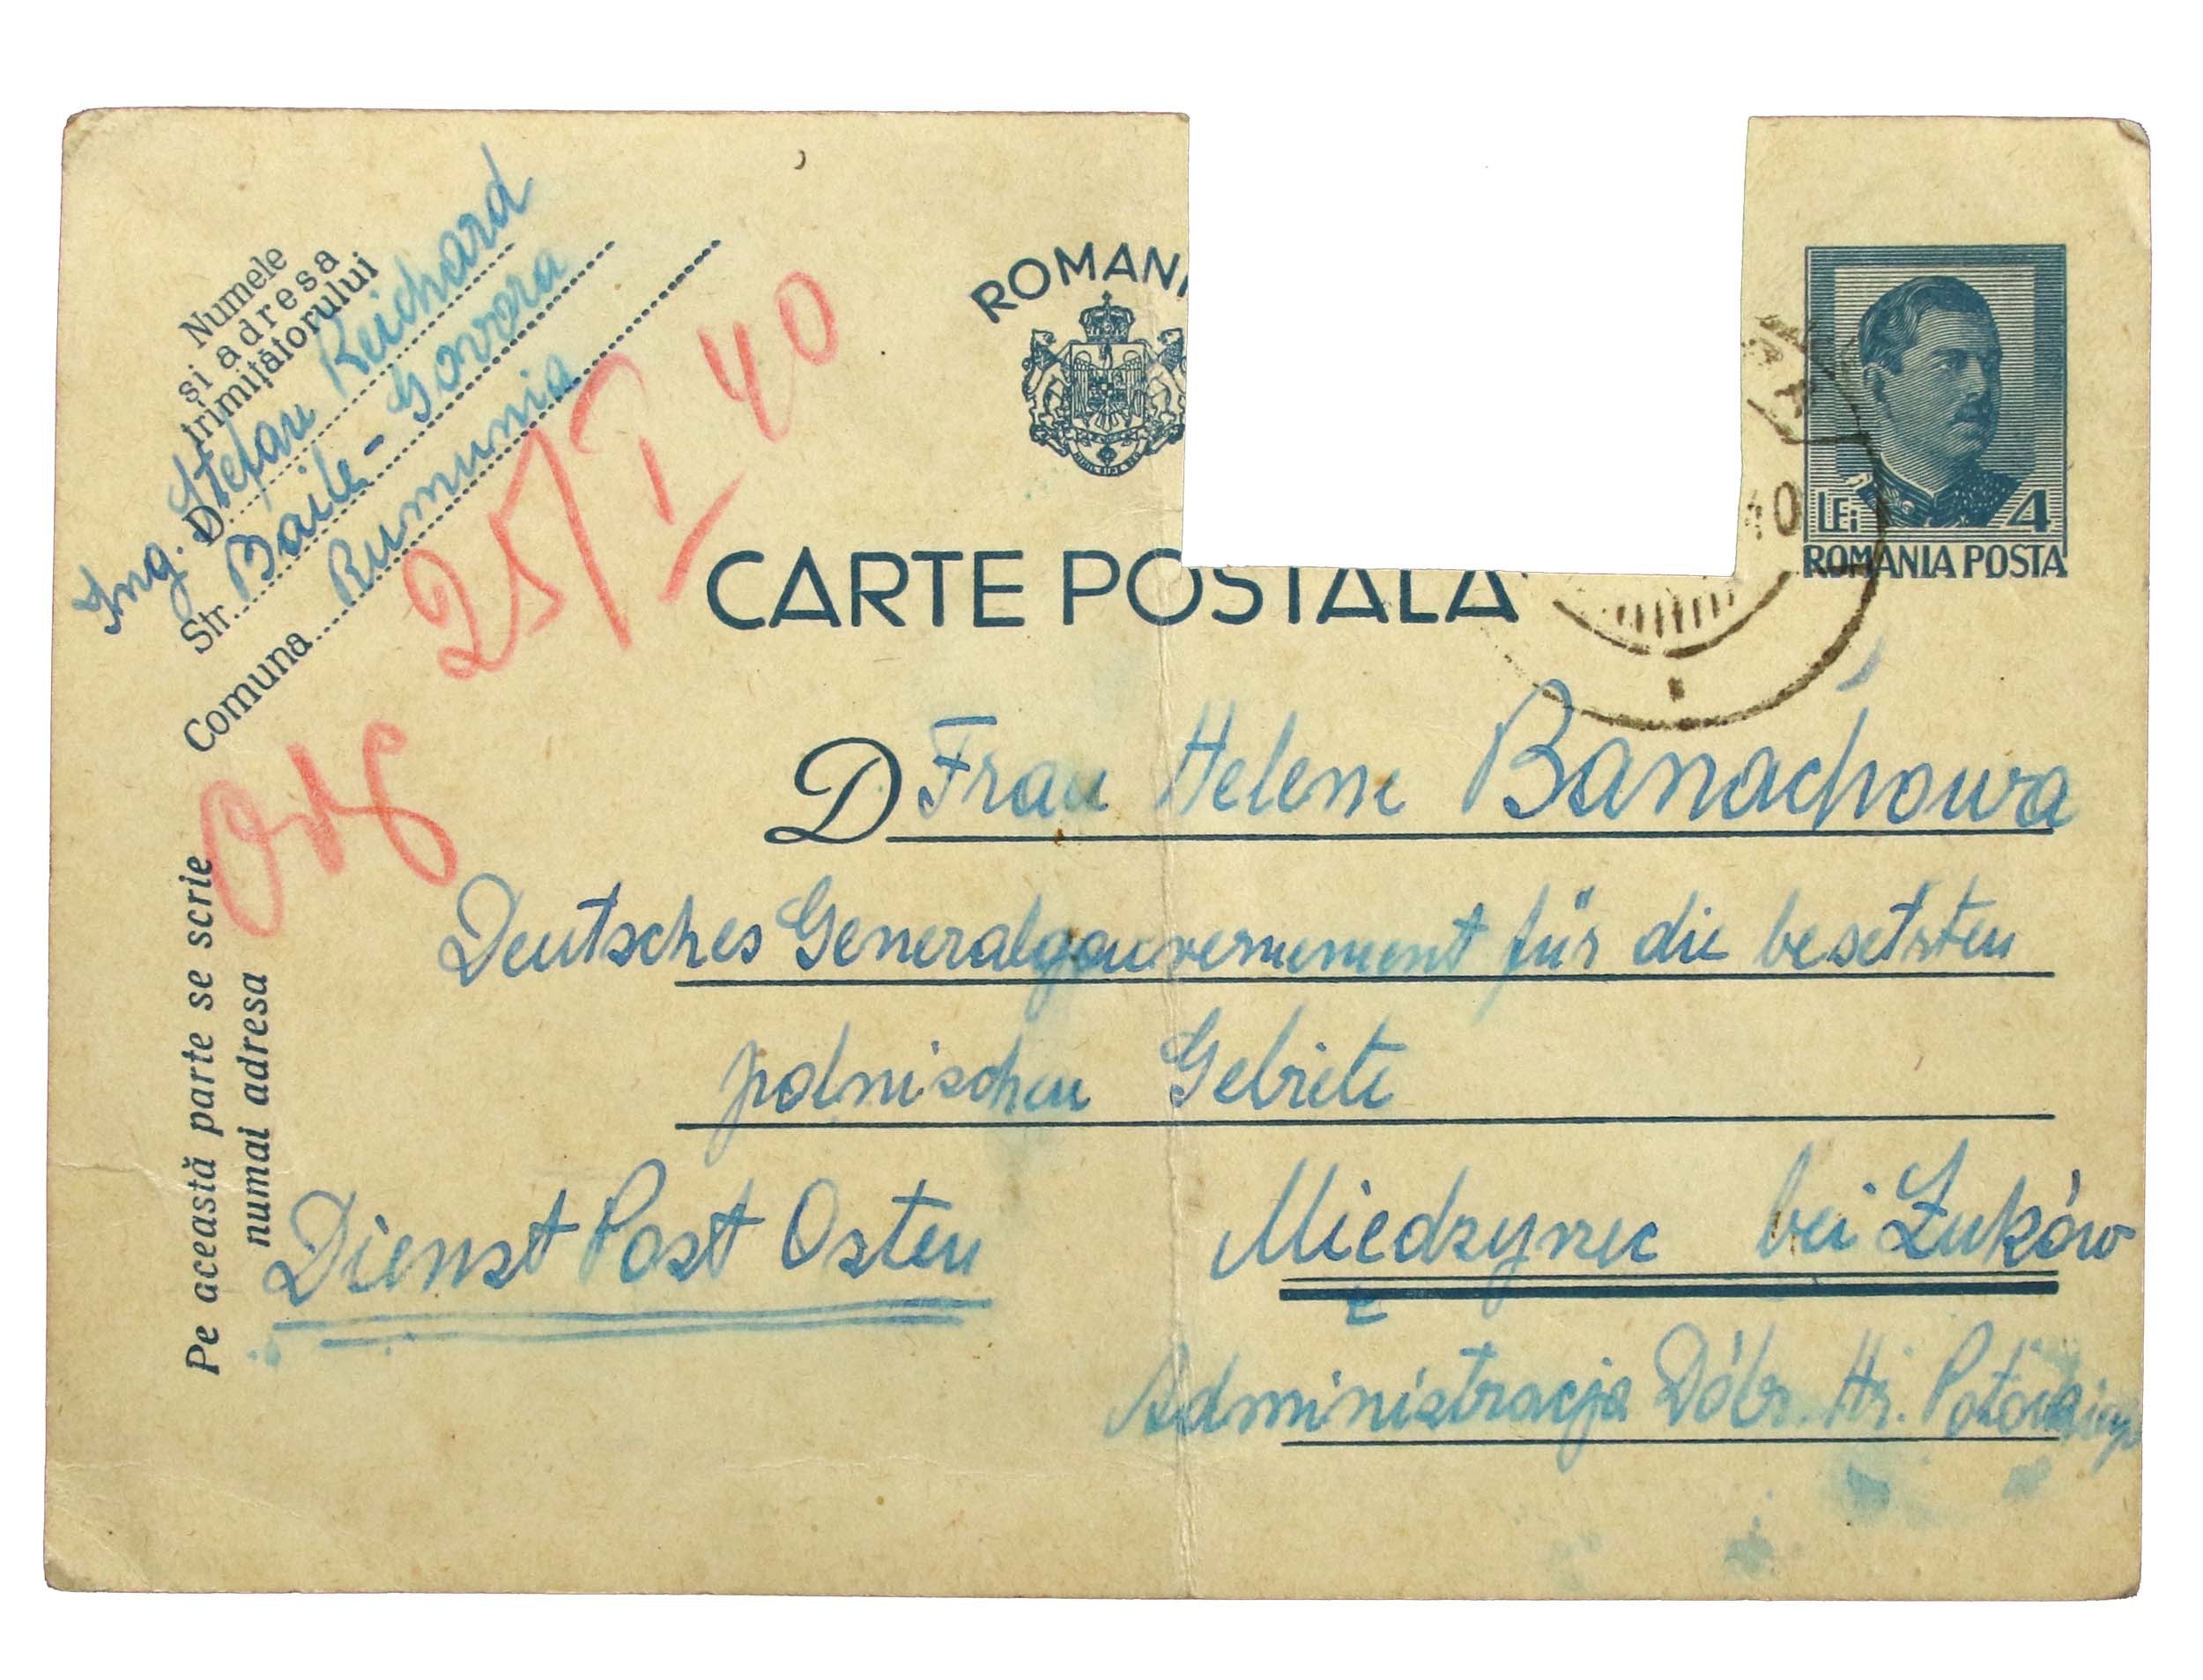 Numele
și adresa
trimițătorului
Ing. D Stefan Reichard
Str. Baile-Govora
Comuna Rumunia
25/I 40
ROMANI
CARTE POSTALA
40
LEI 4
ROMANIA POSTA
D Frau Helene Banachowa
Deutsches Generalgouvernement für die besetzten
polnischen Gebiete
Dienst Post Osten
Miedzyrzec bei Łuków
Administracja Dóbr. Hr. Potockiego
Pe această parte se scrie
numai adresa